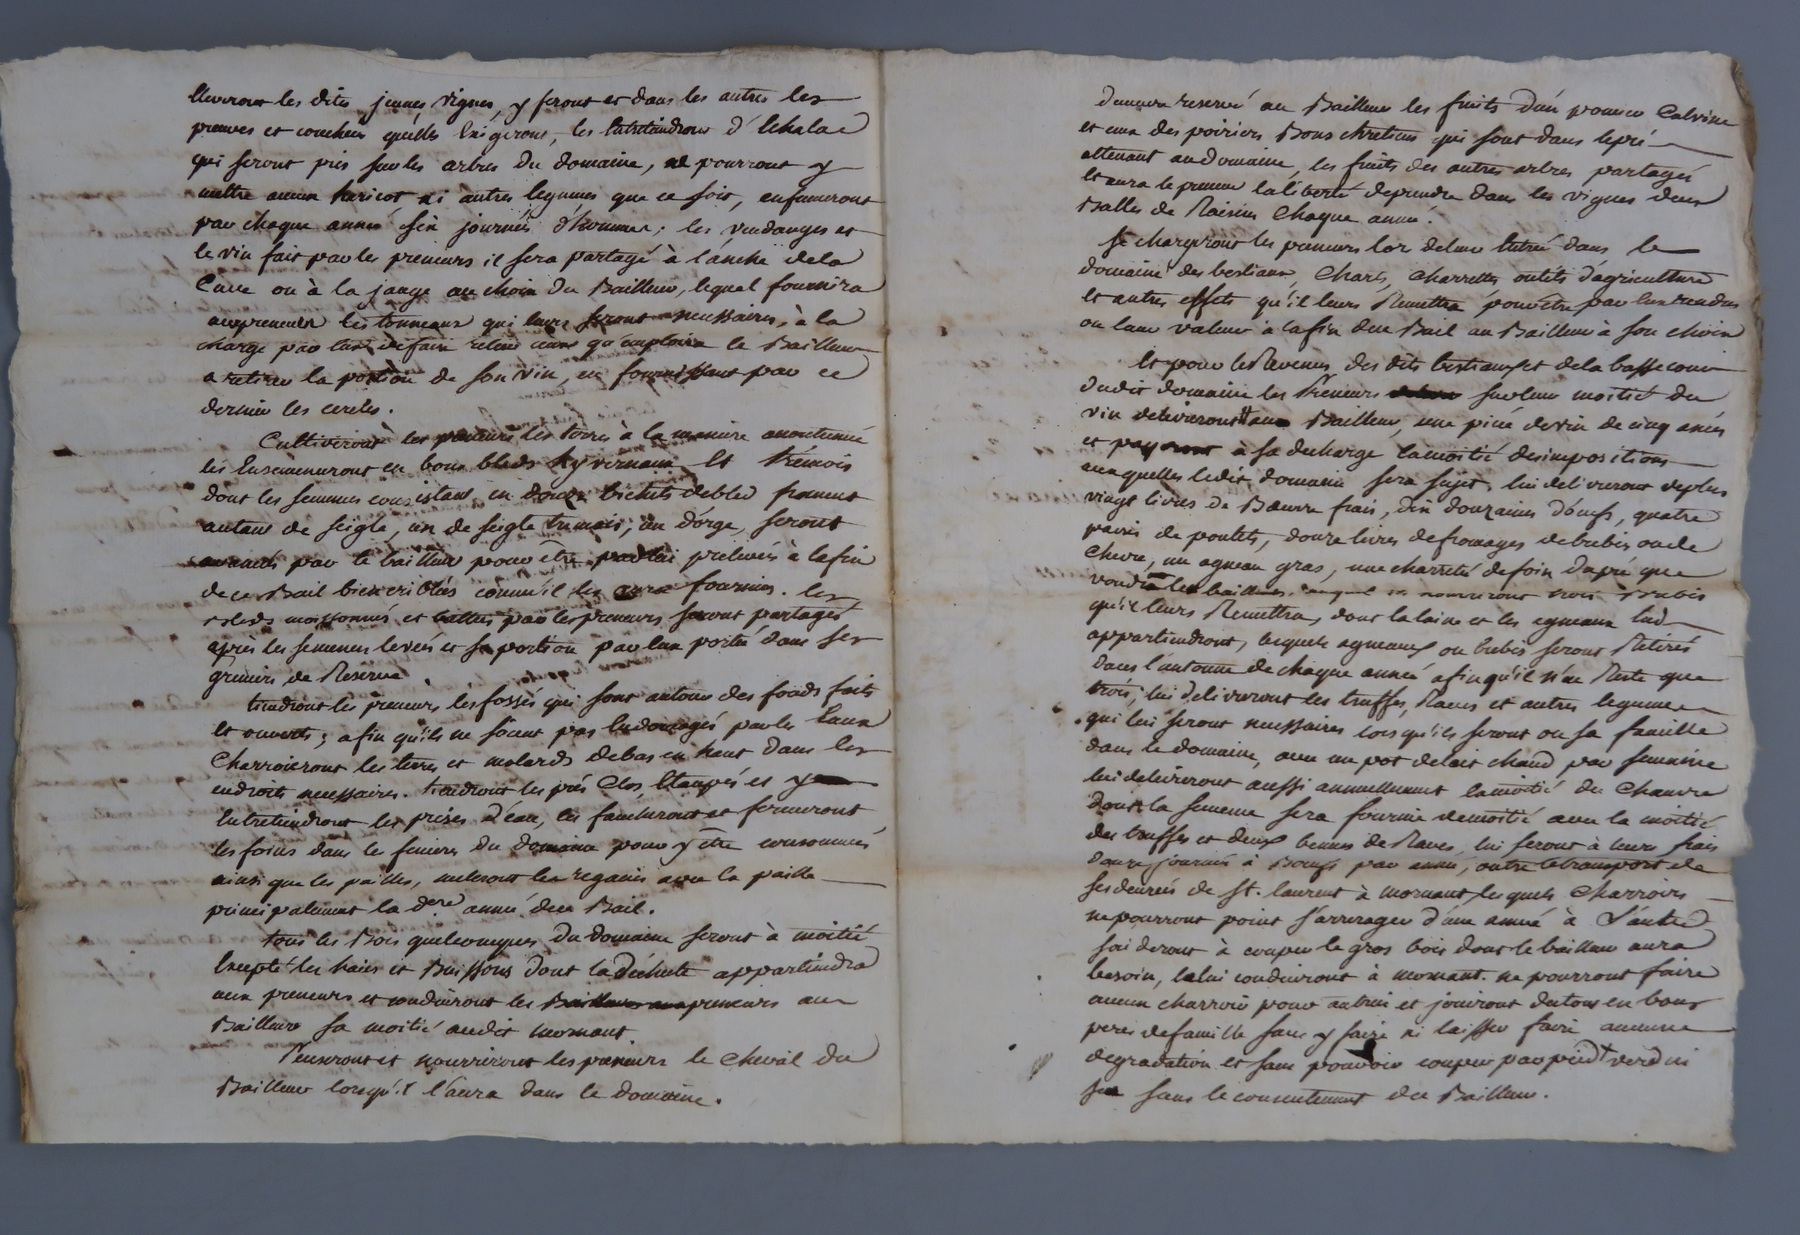 Eleveront les dites jeunes vignes, y feront et dans les autres les
preuves et couches qu'elles Exigeront, les Entretiendront d'Echalac
qui seront pris sur les arbres du domaine, ne pourront y
mettre aucun haricot ni autres legumes que ce soit, enfumeront
par chaque année six journées d'homme; les vendanges et
le vin fait par les preneurs il sera partagé à l'anche de la
Cuve ou à la jauge au choix du Bailleur, lequel fournira
aux preneurs les tonneaux qui leurs seront necessaires, à la
charge par eux de faire relier ceux qu'emploira le Bailleur
a retirer la portion de son vin, en fournissant par ce
dernier les cercles.
Cultiveront les preneurs les terres à la maniere accoutumée
les Ensemenceront en bons bleds hyvernaux Et trémois
dont les semences consistant en douze bichets de bled froment
autant de seigle, un de seigle tremois, un d'orge, seront
avancés par le bailleur pour être par lui prelevés à la fin
de ce Bail bien criblés comme il les aura fournies. les
bleds moissonnés et battus par les preneurs seront partagés
après les semences levées et sa portion par eux portée dans ses
greniers de Reserve.
tiendront les preneurs les fossés qui sont autour des fonds faits
et ouverts; afin qu'ils ne soient pas endomagés par les Eaux
Charroieront les terres et molards de bas en haut dans les
endroits necessaires. tiendront les prés Clos, Etaupés et y
Entretiendront les prises d'eau, les faucheront et fermeront
les foins dans le feniere du domaine pour y être consommés
ainsi que les pailles, meleront les regains avec la paille
principalement la dere année du Bail.
tous les Bois quelconques du domaine seront à moitié
Excepté les haies et Buissons dont la Déchute appartiendra
aux preneurs et conduiront les preneurs au
Bailleur sa moitié audit mornant.
Penseront et nourriront les preneurs le cheval du
Bailleur lorsqu'il l'aura dans le domaine.
demeura reservé au Bailleur les fruits d'un pomier Calvine
et ceux des poiriers Bons chretiens qui sont dans le pré
attenant au domaine, les fruits des autres arbres partagés
Et aura le preneur la liberté de prendre dans les vignes deux
Balles de Raisins Chaque année.
Se chargeront les preneurs lor de leur Entrée dans le
domaine des bestiaux, Chars, charrettes, outils d'agriculture
Et autres effets qu'il leurs Remettra pour être par Eux rendus
ou leur valeur à la fin du Bail au Bailleur à son choix
Et pour les Revenus des dits bestiaux et de la basse cour
dudit domaine les Preneurs sur leur moitié du
vin delivreront au Bailleur, une piéce de vin de cinq anées
et payeront à sa decharge la moitié des impositions
auxquelles ledit domaine sera sujet, lui delivreront de plus
vingt livres de Bœurre frais, dix douzaines d'œufs, quatre
paires de poulets, douze livres de fromages de brebis ou de
Chevre, un agneau gras, une charretée de foin du pré que
voudra le bailleur, nourriront trois Brebis
qu'il leurs Remettra, dont la laine et les agneaux lui
appartiendront, lesquels agneaux ou brebis seront Retirés
dans l'automne de chaque année afin qu'il n'en Reste que
trois; lui delivreront les truffes, Raves et autres legumes
qui lui seront necessaires lorsqu'ils seront ou sa famille
dans le domaine, avec un pot de lait chaud par semaine
lui delivreront aussi annuellement la moitié du Chanvre
dont la semence sera fournie de moitié avec la moitié
des truffes et deux bennes de Raves, lui feront à leurs frais
douze journées à Bœufs par année, outre le transport de
ses denrées de St. laurent à mornant lesquels Charrois
ne pourront point s'arrerager d'une année à L'autre
s'aideront à couper le gros bois dont le bailleur aura
besoin, le lui conduiront à mornant. ne pourront faire
aucun charroir pour autrui et jouiront du tout en bons
peres de famille sans y faire ni laisser faire aucune
degradation et sans pouvoir couper par pied verd ni
sec sans le consentement du Bailleur.